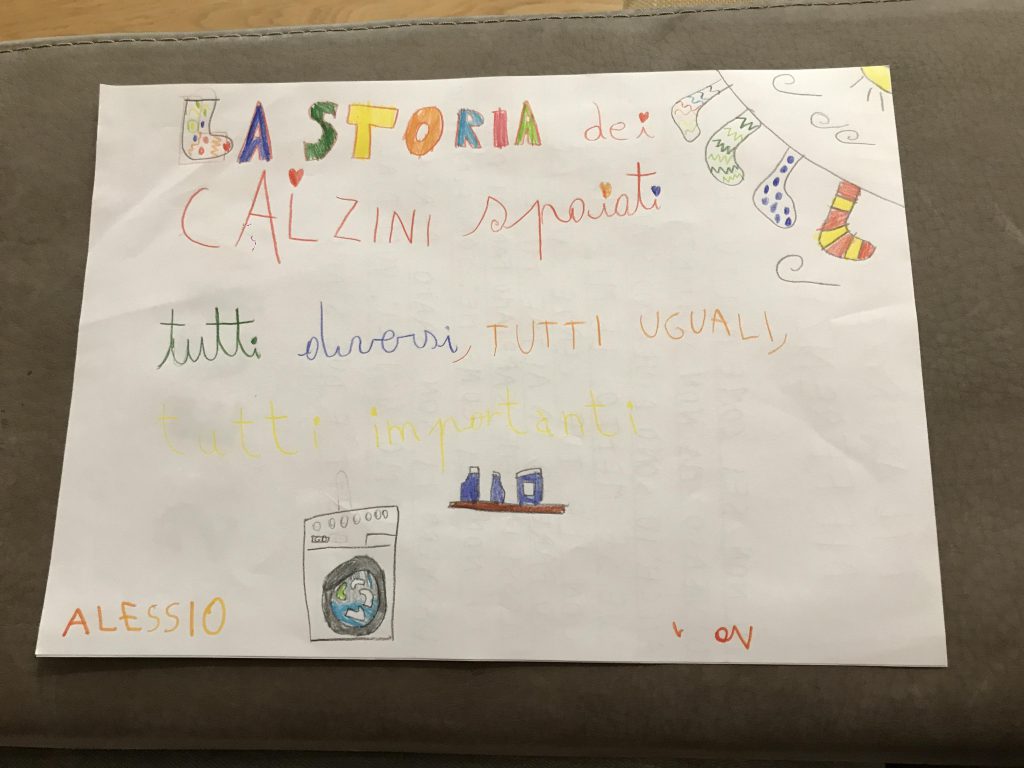 LA STORIA dei
CALZINI spaiati
tutti diversi, TUTTI UGUALI,
tutti importanti
ALESSIO